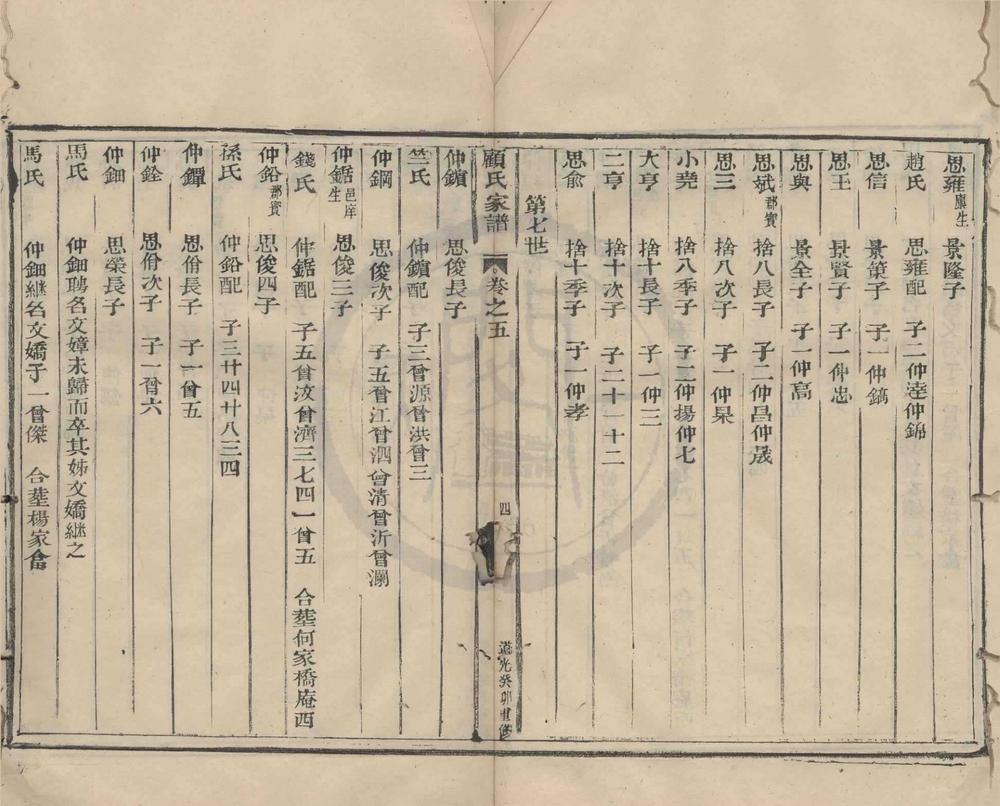 思雍廩生 景隆子
趙氏 思雍配 子二仲逵仲錦
思信 景策子 子一仲鎬
思王 景賢子 子一仲忠
思典 景全子 子一仲高
思斌郡賓 捨八長子 子二仲昌仲晟
思三 捨八次子 子一仲杲
小堯 捨八季子 子二仲揚仲七
大亨 捨十長子 子一仲三
二亨 捨十次子 子二十一十二
思俞 捨十季子 子一仲孝
第七世
顧氏家譜 卷之五 四 道光癸卯重修
仲鑌 思俊長子
竺氏 仲鑌配 子三曾源曾洪曾三
仲鋼 思俊次子 子五曾江曾泗曾清曾沂曾瀾
仲鋸邑庠生 思俊三子
錢氏 仲鋸配 子五曾汶曾濟三七四一曾五 合塟何家橋庵西
仲鉛郡賓 思俊四子
孫氏 仲鉛配 子三廿四廿八三四
仲鐔 思僧長子 子一曾五
仲銓 思僧次子 子一曾六
仲鈿 思榮長子
馬氏 仲鈿聘名文嫜未歸而卒其姊文嬌継之
馬氏 仲鈿継名文嬌子一曾傑 合塟楊家畬